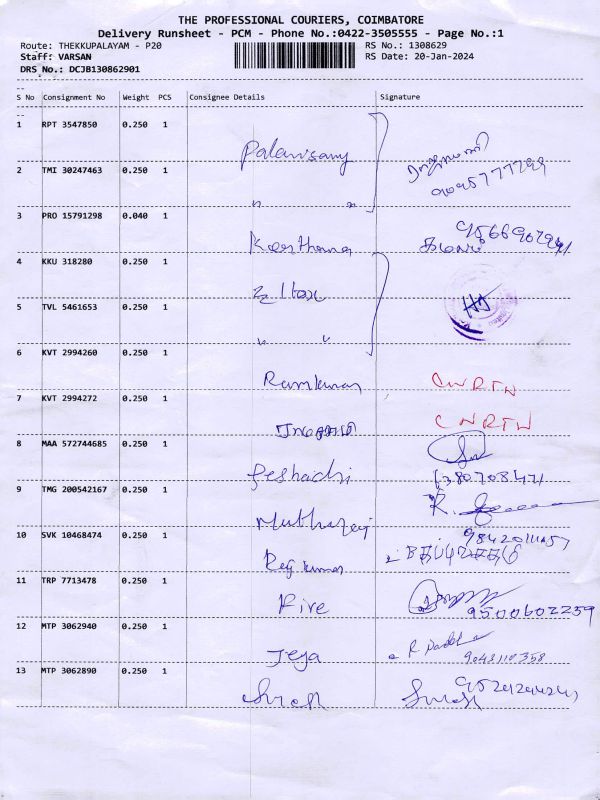 THE PROFESSIONAL COURIERS, COIMBATORE
Delivery Runsheet - PCM - Phone No.:0422-3505555 - Page No.:1
Route: THEKKUPALAYAM - P20 RS No.: 1308629
Staff: VARSAN RS Date: 20-Jan-2024
DRS No.: DCJB130862901
S No Consignment No Weight PCS Consignee Details Signature
1 RPT 3547850 0.250 1
Palanisamy
2 TMI 30247463 0.250 1
" "
3 PRO 15791298 0.040 1
4 KKU 318280 0.250 1
5 TVL 5461653 0.250 1
" "
6 KVT 2994260 0.250 1
Ramkumar CNRTN
7 KVT 2994272 0.250 1
CNRTN
8 MAA 572744685 0.250 1
Seshadri 6380708471
9 TMG 200542167 0.250 1
Muthuraj R.
10 SVK 10468474 0.250 1
Rajkumar
11 TRP 7713478 0.250 1
Five 9500602259
12 MTP 3062940 0.250 1
Jeya 9043110358
13 MTP 3062890 0.250 1
Suresh Suresh